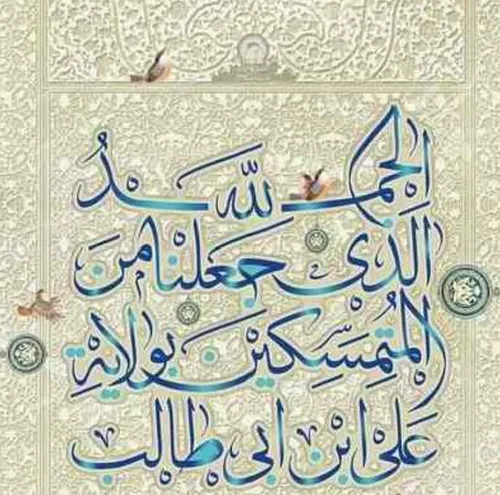 الحمد لله
الذی جعلنا من
المتمسکین بولایة
علی ابن ابی طالب